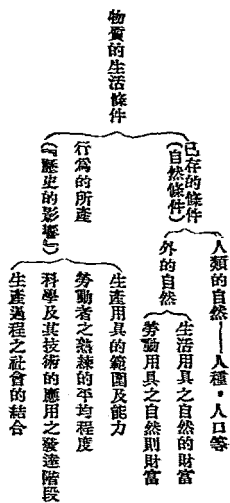 物質的生活條件
已存的條件
(自然條件)
人類的自然——人種・人口等
外的自然
生活用具之自然的財富
勞動用具之自然則財富
行為的所產
(『歷史的影響』)
生產用具的範圍及能力
勞動者之熟練的平均程度
科學及其技術的應用之發達階段
生產過程之社會的結合